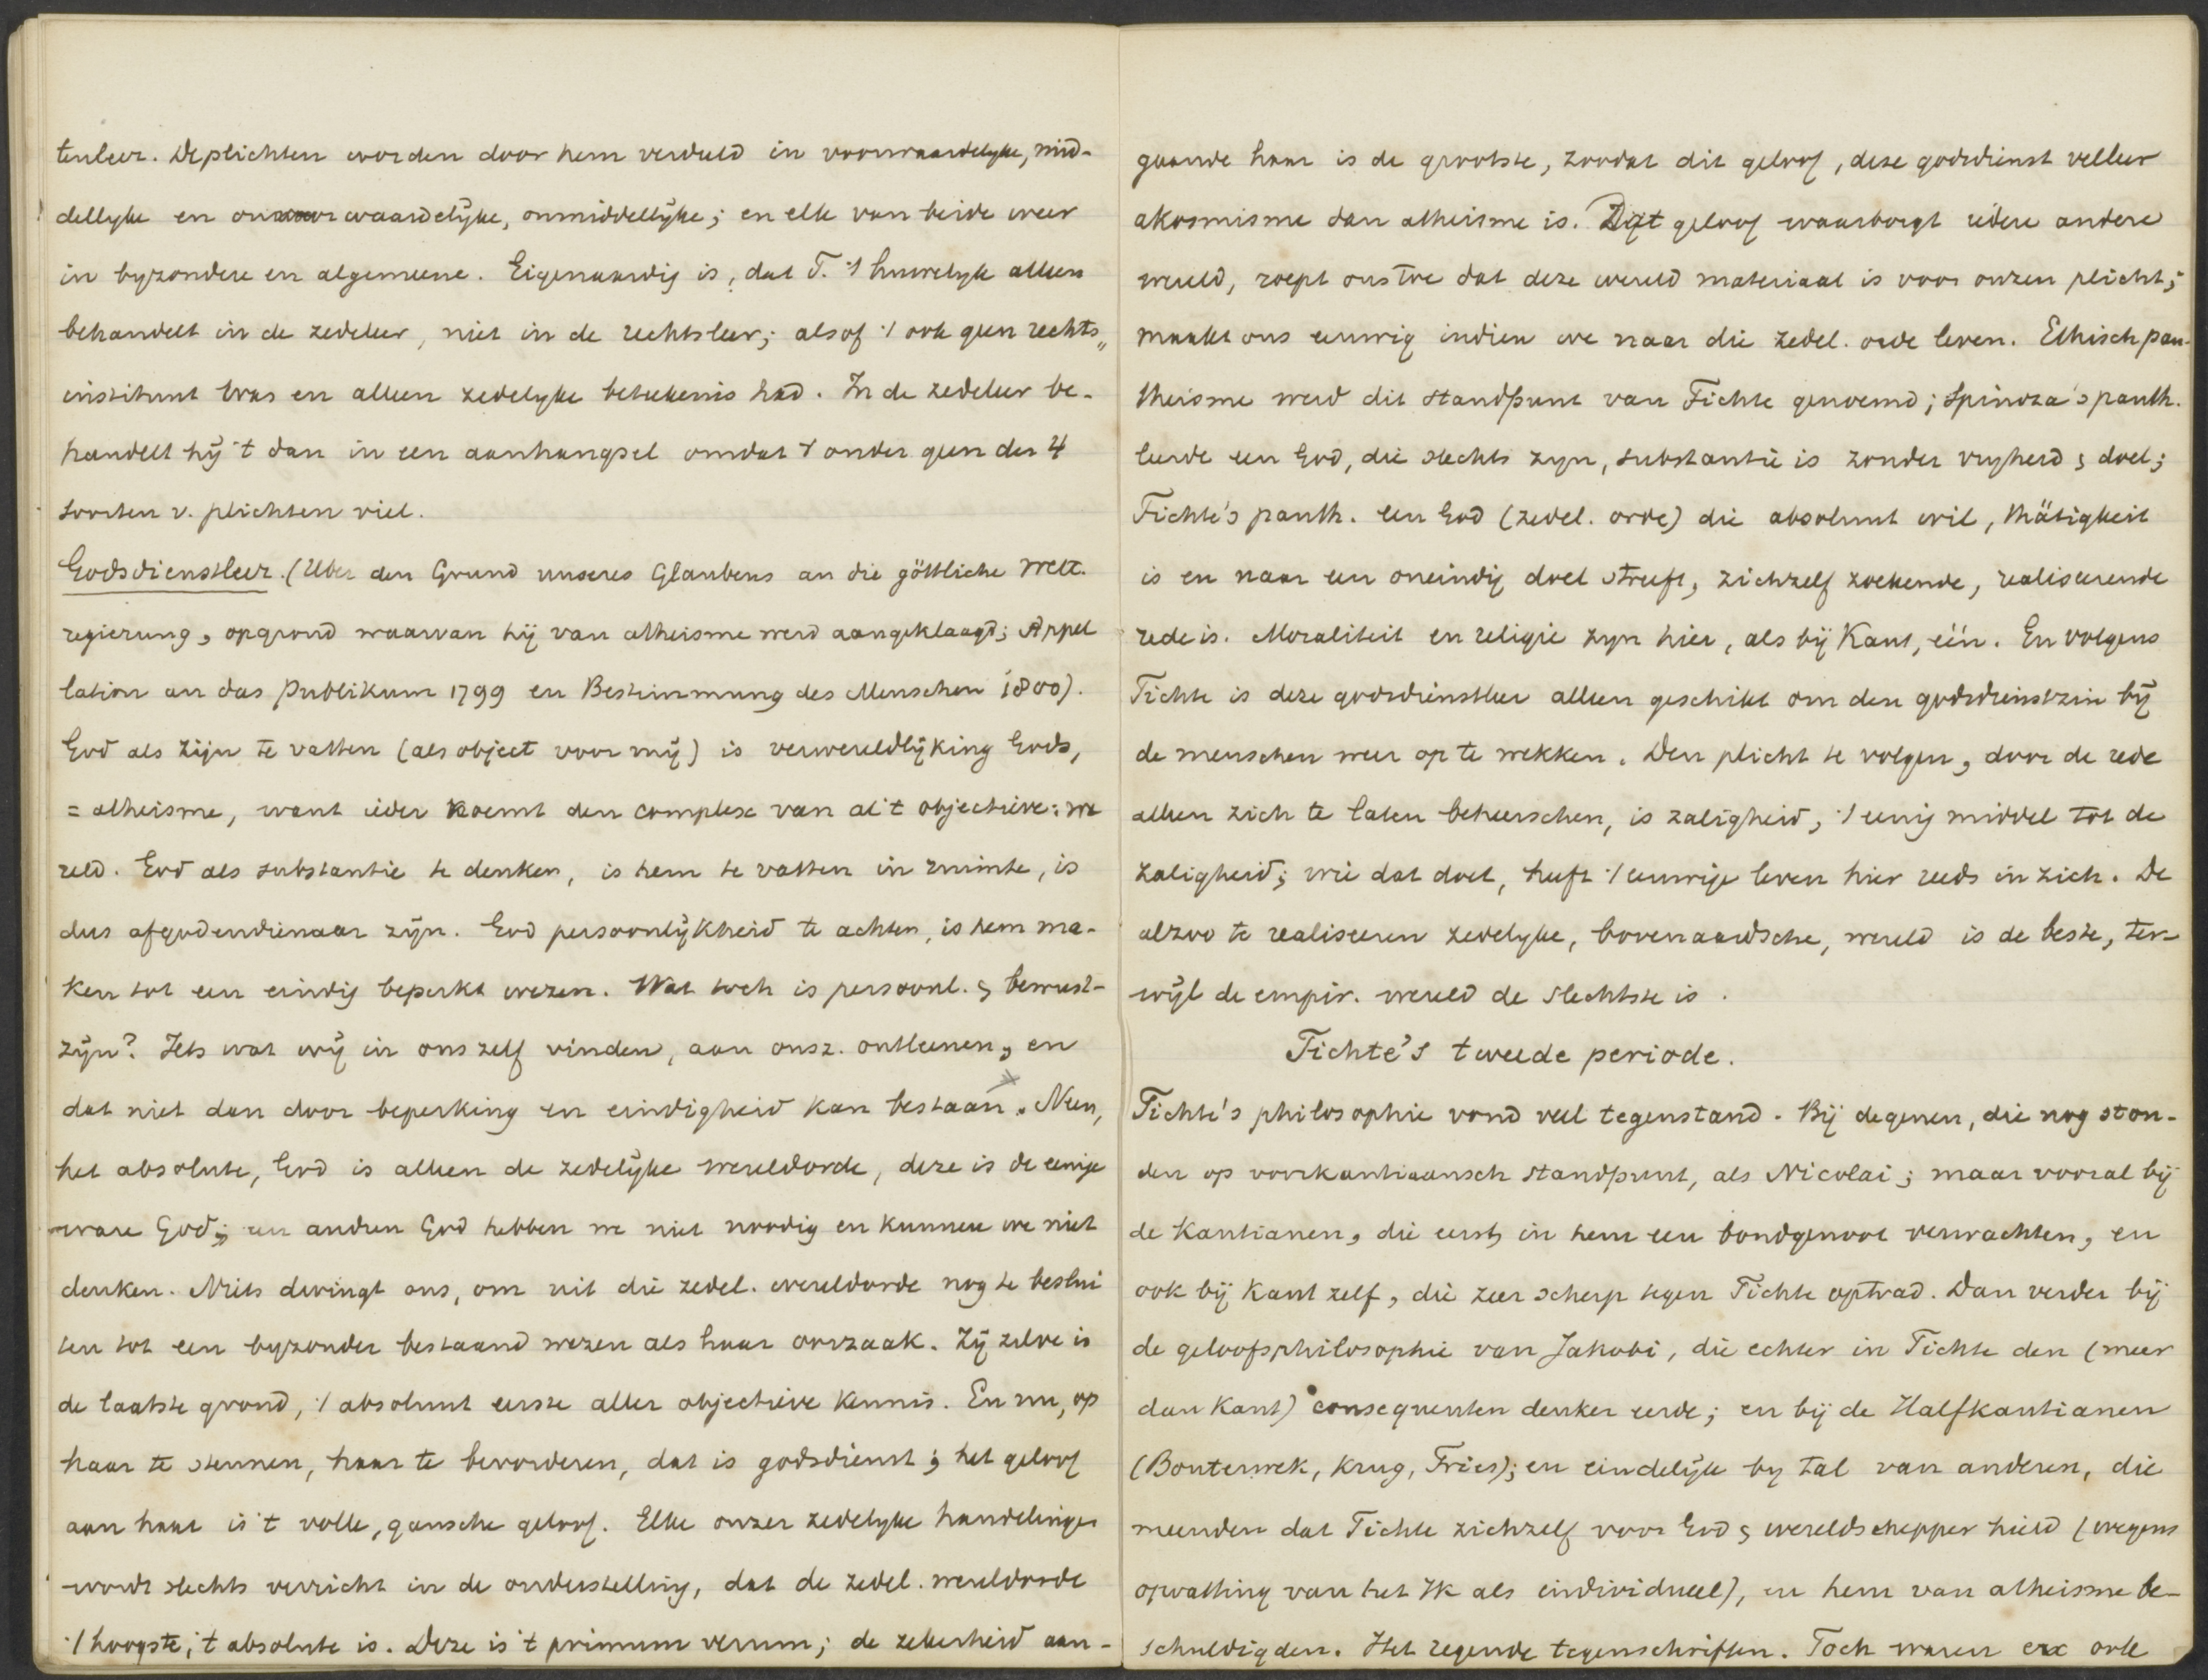 tenleer. De plichten worden door hem verdeeld in voorwaardelyke, mid-
dellyke en onvoorwaardelijke, onmiddellijke; en elk van beide weer
in byzondere en algemeene. Eigenaardig is, dat F. 't huwelyk alleen
behandelt in de zedeleer, niet in de rechtsleer; alsof 't ook geen rechts„
instituut was en alleen zedelyke beteekenis had. In de zedeleer be-
handelt hij 't dan in een aanhangsel omdat 't onder geen der 4
soorten v. plichten viel.
Godsdienstleer. (Uber den Grund unseres Glaubens an die göttliche Welt.
regierung, op grond waarvan hij van atheisme werd aangeklaagd; Appel
lation an das Publikum 1799 en Bestimmung des Menschen 1800).
God als zijn te vatten (als object voor mij) is verwereldlijking Gods,
= atheisme, want ieder noemt den complex van al 't objectieve: we
reld. God als substantie te denken, is hem te vatten in ruimte, is
dus afgodendienaar zijn. God persoonlijkheid te achten, is hem ma-
ken tot een eindig beperkt wezen. Wat toch is persoonl. & bewust-
zijn? Iets wat wij in ons zelf vinden, aan onsz. ontleenen, en
dat niet dan door beperking en eindigheid kan bestaan. Neen,
het absolute, God is alleen de zedelijke wereldorde, deze is de eenige
ware God; een andren God hebben we niet noodig en kunnen we niet
denken. Niets dwingt ons, om uit die zedel. wereldorde nog te beslui
ten tot een byzonder bestaand wezen als haar oorzaak. Zij zelve is
de laatste grond, 't absoluut eerste aller objectieve kennis. En nu, op
haar te steunen, haar te bevorderen, dat is godsdienst; het geloof
aan haar is 't volle, gansche geloof. Elke onzer zedelyke handelingen
wordt slechts verricht in de onderstelling, dat de zedel. wereldorde
't hoogste, 't absolute is. Deze is 't primum verum; de zekerheid aan-
gaande haar is de grootste, zoodat dit geloof, deze godsdienst velleer
akosmisme dan atheisme is. Dit geloof waarborgt iedere andere
wereld, roept ons toe dat deze wereld materiaal is voor onzen plicht;
maakt ons eeuwig indien we naar die zedel. orde leven. Ethisch pan-
theisme werd dit standpunt van Fichte genoemd; Spinoza's panth.
leerde een God, die slechts zyn, substantie is zonder vryheid & doel;
Fichte's panth. een God (zedel. orde) die absoluut wil, thätigkeit
is en naar een oneindig doel streeft, zichzelf zoekende, realiseerende
rede is. Moraliteit en religie zyn hier, als bij Kant, één. En volgens
Fichte is deze godsdienstleer alleen geschikt om den godsdienstzin bij
de menschen weer op te wekken. Den plicht te volgen, door de rede
alleen zich te laten beheerschen, is zaligheid, 't eenig middel tot de
zaligheid; wie dat doet, heeft 't eeuwige leven hier reeds in zich. De
alzoo te realiseeren zedelyke, bovenaardsche, wereld is de beste, ter-
wijl de empir. wereld de slechtste is.
Fichte's tweede periode.
Fichte's philosophie vond veel tegenstand. Bij degenen, die nog ston-
den op voorkantiaansch standpunt, als Nicolai; maar vooral bij
de Kantianen, die eerst, in hem een bondgenoot verwachten, en
ook bij Kant zelf, die zeer scherp tegen Fichte optrad. Dan verder bij
de geloofsphilosophie van Jakobi, die echter in Fichte den (meer
dan Kant) consequenten denker eerde; en bij de Halfkantianen
(Bouterwek, Krug, Fries); en eindelijk by tal van anderen, die
meenden dat Fichte zichzelf voor God & wereldschepper hield (wegens
opvatting van het Ik als individueel), en hem van atheisme be-
schuldigden. Het regende tegenschriften. Toch waren er ook